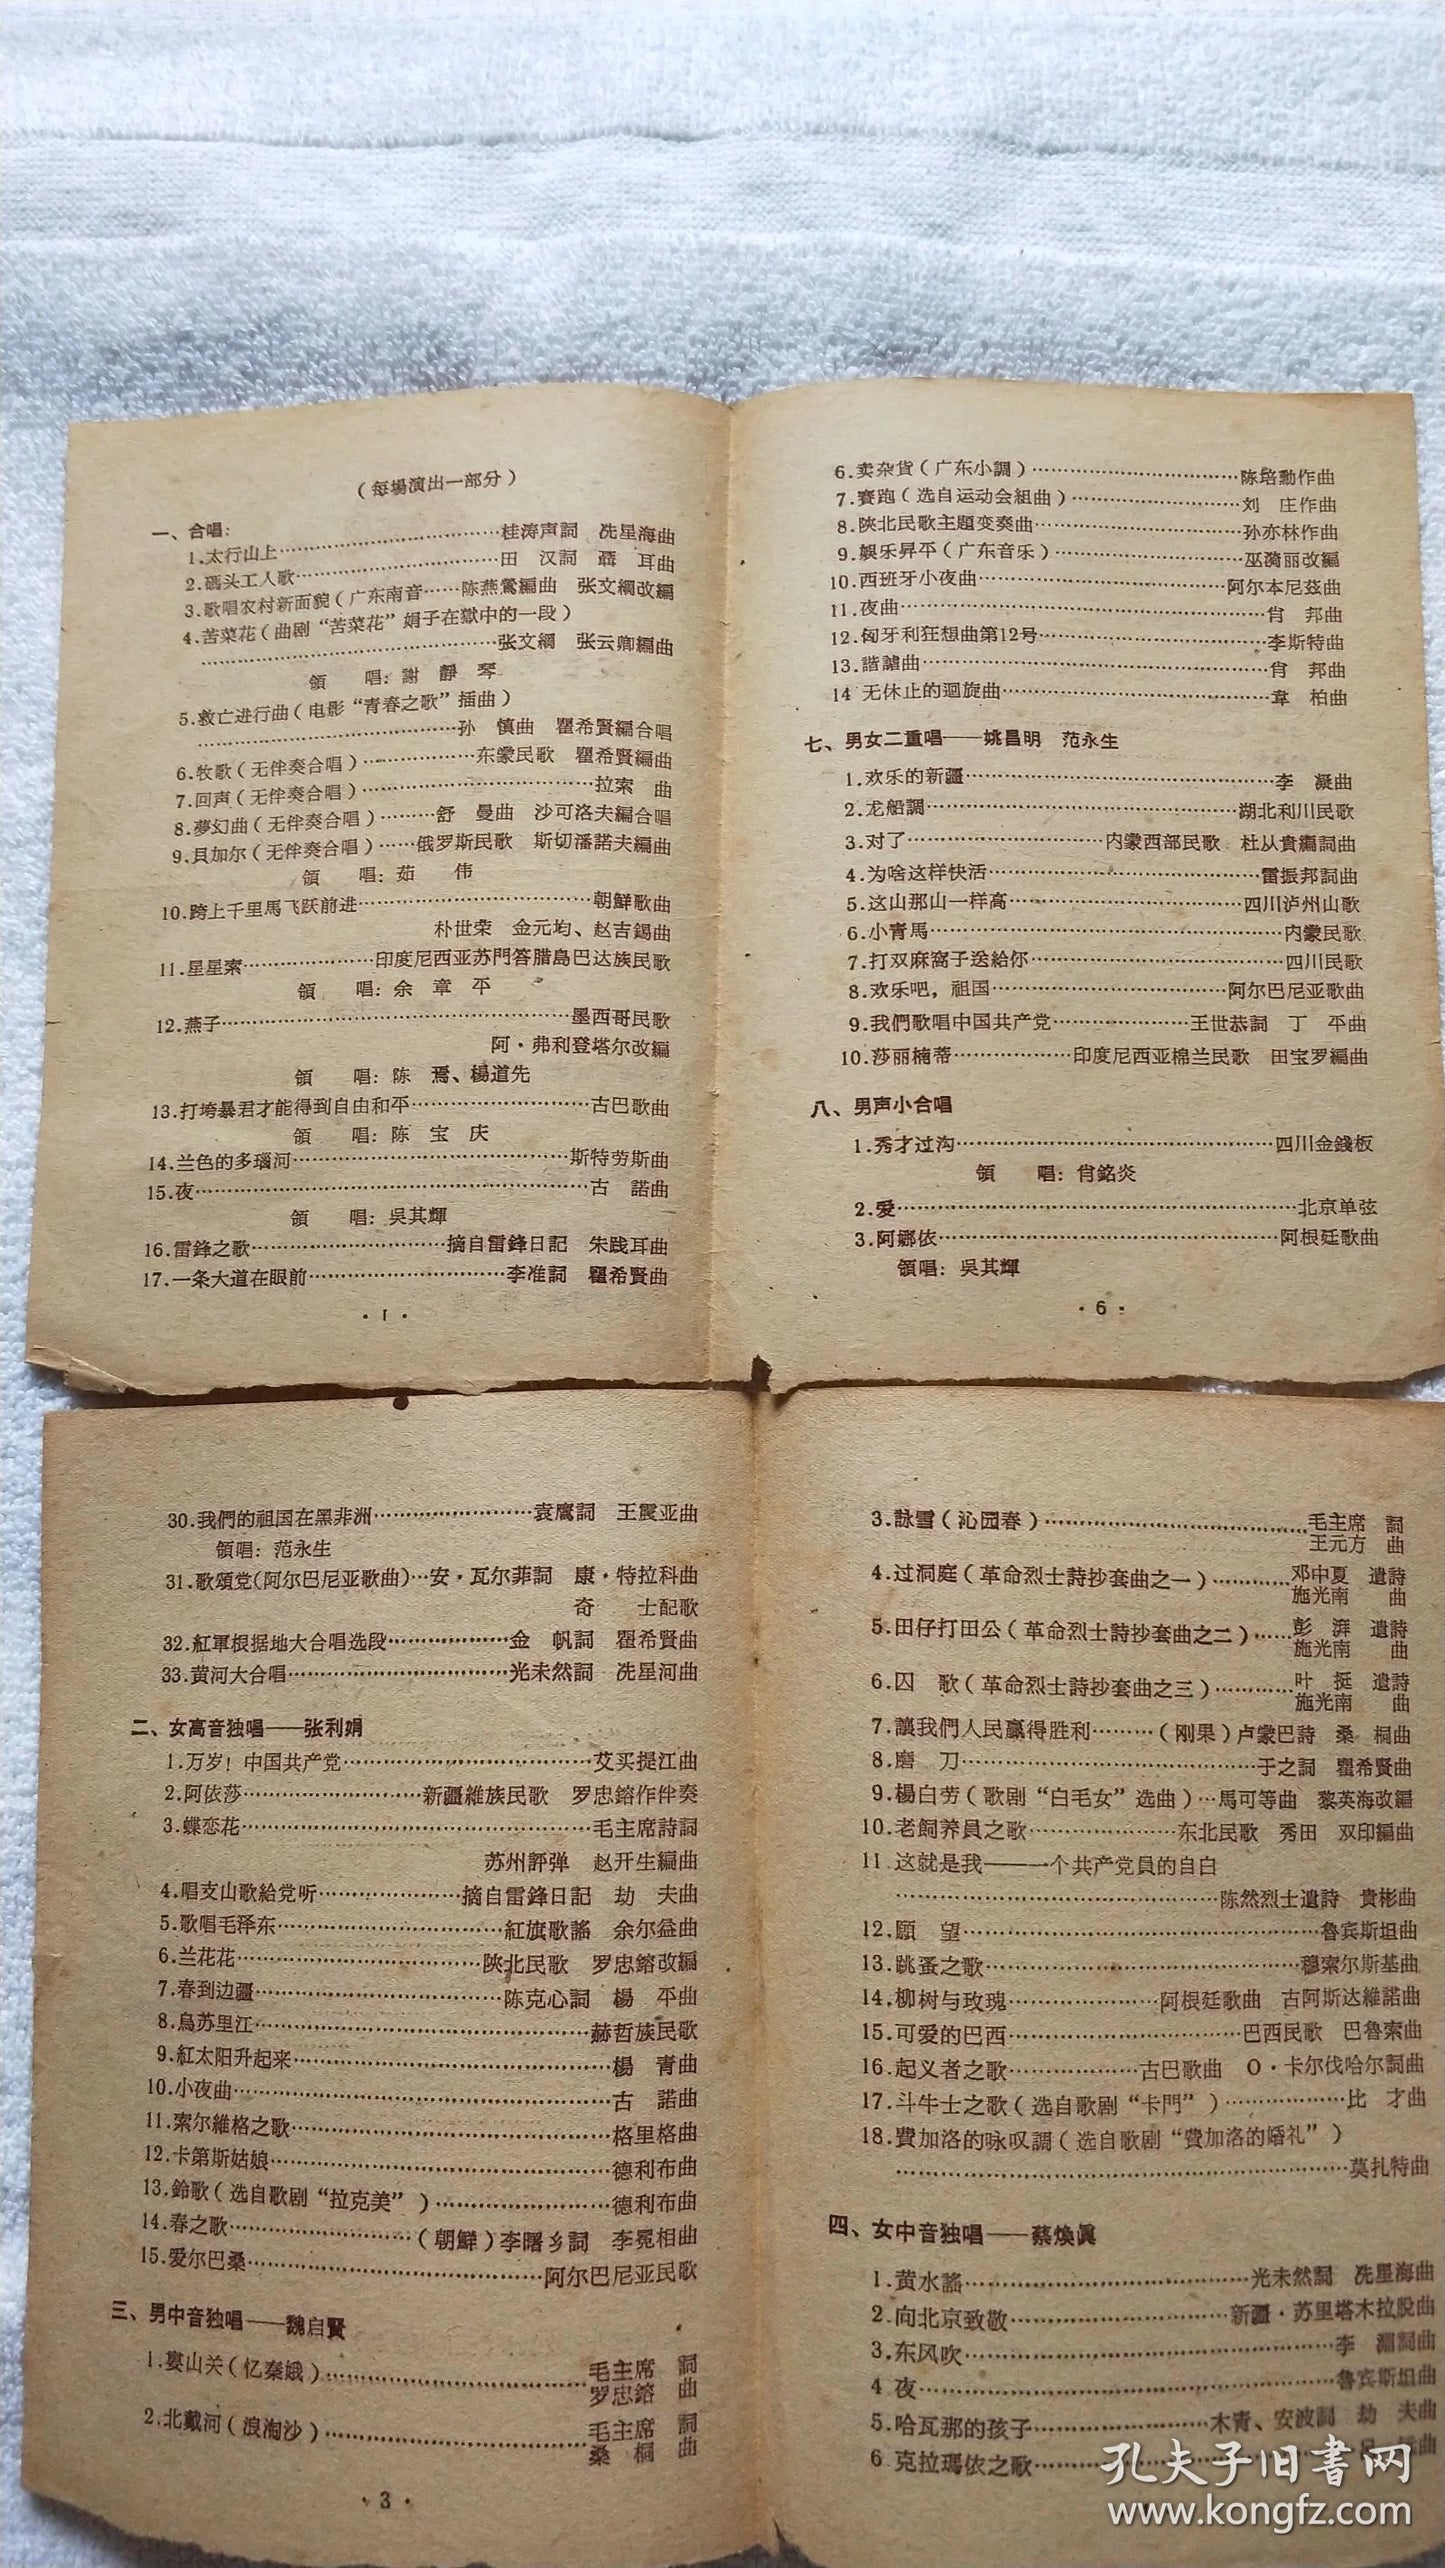 （每場演出一部分）
一、合唱：
1.太行山上……桂涛声詞　冼星海曲
2.碼头工人歌……田　汉詞　聶　耳曲
3.歌唱农村新面貌（广东南音……陈燕鶯編曲　张文綱改編
4.苦菜花（曲剧“苦菜花”娟子在獄中的一段）
……张文綱　张云卿編曲
領　唱：謝　靜　琴
5.救亡进行曲（电影“青春之歌”插曲）
……孙　慎曲　瞿希賢編合唱
6.牧歌（无伴奏合唱）……东蒙民歌　瞿希賢編曲
7.回声（无伴奏合唱）……拉索　曲
8.夢幻曲（无伴奏合唱）……舒　曼曲　沙可洛夫編合唱
9.貝加尔（无伴奏合唱）……俄罗斯民歌　斯切潘諾夫編曲
領　唱：茹　伟
10.跨上千里馬飞跃前进……朝鮮歌曲
朴世荣　金元均、赵吉錫曲
11.星星索……印度尼西亚苏門答腊島巴达族民歌
領　唱：余　章　平
12.燕子……墨西哥民歌
阿·弗利登塔尔改編
領　唱：陈　焉、楊道先
13.打垮暴君才能得到自由和平……古巴歌曲
領　唱：陈　宝　庆
14.兰色的多瑙河……斯特劳斯曲
15.夜……古　諾曲
領　唱：吳其輝
16.雷鋒之歌……摘自雷鋒日記　朱践耳曲
17.一条大道在眼前……李准詞　瞿希賢曲
·1·
6.卖杂貨（广东小調）……陈培勳作曲
7.賽跑（选自运动会組曲）……刘　庄作曲
8.陝北民歌主題变奏曲……孙亦林作曲
9.娛乐昇平（广东音乐）……巫漪丽改編
10.西班牙小夜曲……阿尔本尼茲曲
11.夜曲……肖　邦曲
12.匈牙利狂想曲第12号……李斯特曲
13.諧謔曲……肖　邦曲
14 无休止的迴旋曲……韋　柏曲
七、男女二重唱——姚昌明　范永生
1.欢乐的新疆……李　凝曲
2.龙船調……湖北利川民歌
3.对了……内蒙西部民歌　杜从貴編詞曲
4.为啥这样快活……雷振邦詞曲
5.这山那山一样高……四川泸州山歌
6.小青馬……内蒙民歌
7.打双麻窩子送給你……四川民歌
8.欢乐吧，祖国……阿尔巴尼亚歌曲
9.我們歌唱中国共产党……王世恭詞　丁　平曲
10.莎丽楠蒂……印度尼西亚棉兰民歌　田宝罗編曲
八、男声小合唱
1.秀才过沟……四川金錢板
領　唱：肖銘炎
2.爱……北京单弦
3.阿娜依……阿根廷歌曲
領唱：吳其輝
·6·
30.我們的祖国在黑非洲……袁鷹詞　王震亚曲
領唱：范永生
31.歌頌党（阿尔巴尼亚歌曲）…安·瓦尔菲詞　康·特拉科曲
奇　士配歌
32.紅軍根据地大合唱选段……金　帆詞　瞿希賢曲
33.黄河大合唱……光未然詞　冼星河曲
二、女高音独唱——张利娟
1.万岁！中国共产党……艾买提江曲
2.阿依莎……新疆維族民歌　罗忠鎔作伴奏
3.蝶恋花……毛主席詩詞
苏州評弹　赵开生編曲
4.唱支山歌給党听……摘自雷鋒日記　劫　夫曲
5.歌唱毛泽东……紅旗歌謠　余尔益曲
6.兰花花……陝北民歌　罗忠鎔改編
7.春到边疆……陈克心詞　楊　平曲
8.烏苏里江……赫哲族民歌
9.紅太阳升起来……楊　青曲
10.小夜曲……古　諾曲
11.索尔維格之歌……格里格曲
12.卡第斯姑娘……德利布曲
13.鈴歌（选自歌剧“拉克美”）……德利布曲
14.春之歌……（朝鮮）李曙乡詞　李冕相曲
15.爱尔巴桑……阿尔巴尼亚民歌
三、男中音独唱——魏启賢
1.婁山关（忆秦娥）……毛主席　詞
罗忠鎔　曲
2.北戴河（浪淘沙）……毛主席　詞
桑　桐　曲
·3·
3.詠雪（沁园春）……毛主席　詞
王元方　曲
4.过洞庭（革命烈士詩抄套曲之一）……邓中夏　遺詩
施光南　曲
5.田仔打田公（革命烈士詩抄套曲之二）……彭　湃　遺詩
施光南　曲
6.囚　歌（革命烈士詩抄套曲之三）……叶　挺　遺詩
施光南　曲
7.讓我們人民贏得胜利……（刚果）卢蒙巴詩　桑　桐曲
8.磨　刀……于之詞　瞿希賢曲
9.楊白劳（歌剧“白毛女”选曲）…馬可等曲　黎英海改編
10.老飼养員之歌……东北民歌　秀田　双印編曲
11 这就是我——一个共产党員的自白
……陈然烈士遺詩　貴彬曲
12.願　望……魯宾斯坦曲
13.跳蚤之歌……穆索尔斯基曲
14.柳树与玫瑰……阿根廷歌曲　古阿斯达維諾曲
15.可爱的巴西……巴西民歌　巴魯索曲
16.起义者之歌……古巴歌曲　O·卡尔伐哈尔詞曲
17.斗牛士之歌（选自歌剧“卡門”）……比　才曲
18.費加洛的咏叹調（选自歌剧“費加洛的婚礼”）
……莫扎特曲
四、女中音独唱——蔡煥眞
1.黄水謠……光未然詞　冼星海曲
2.向北京致敬……新疆·苏里塔木拉脫曲
3.东风吹……李　詞曲
4 夜……魯宾斯坦曲
5.哈瓦那的孩子……木青、安波詞　劫　夫曲
6 克拉瑪依之歌……曲
孔夫子旧書网
www.kongfz.com